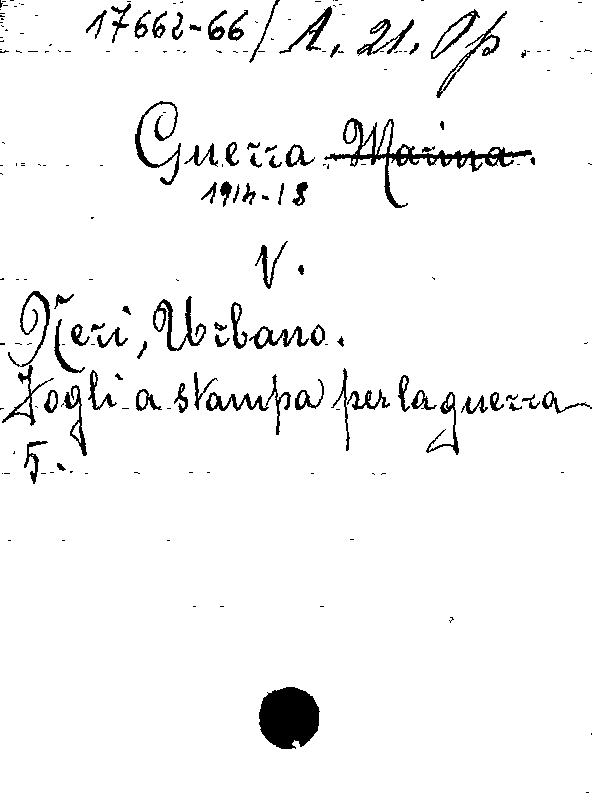 17662-66/ A. 21. Op.
Guerra Marina.
1914-18
V.
Neri, Urbano.
Fogli a stampa per la guerra
5.